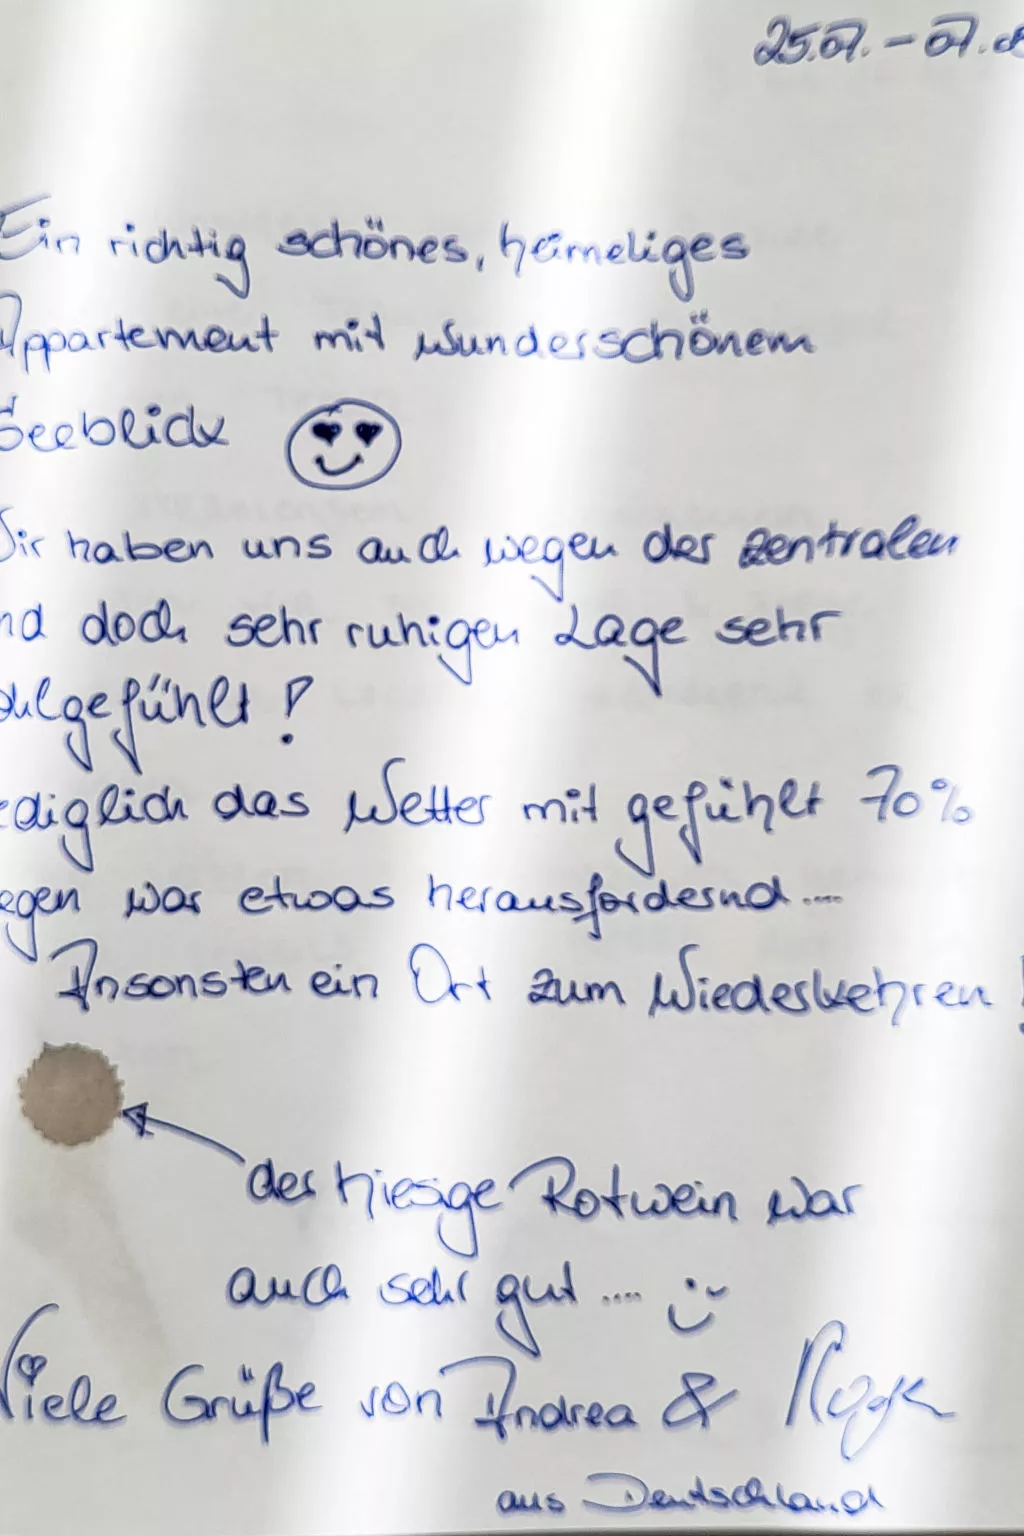 25.07. - 07.0
Ein richtig schönes, heimeliges
Appartement mit wunderschönem
Seeblick
Wir haben uns auch wegen der zentralen
nd doch sehr ruhigen Lage sehr
ohlgefühlt!
ediglich das Wetter mit gefühlt 70%
egen war etwas herausfordernd....
Ansonsten ein Ort zum Wiederkehren!
der hiesige Rotwein war
auch sehr gut ....
Viele Grüße von Andrea &
aus Deutschland